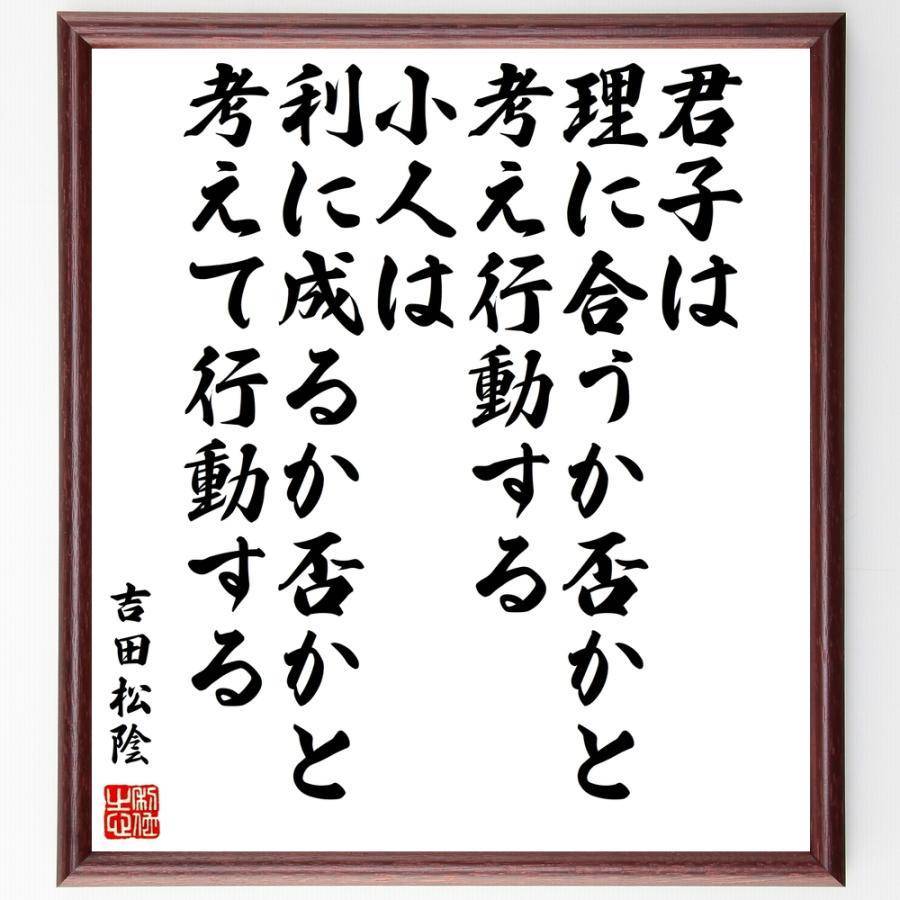 君子は
理に合うか否かと
考え行動する
小人は
利に成るか否かと
考えて行動する
吉田松陰